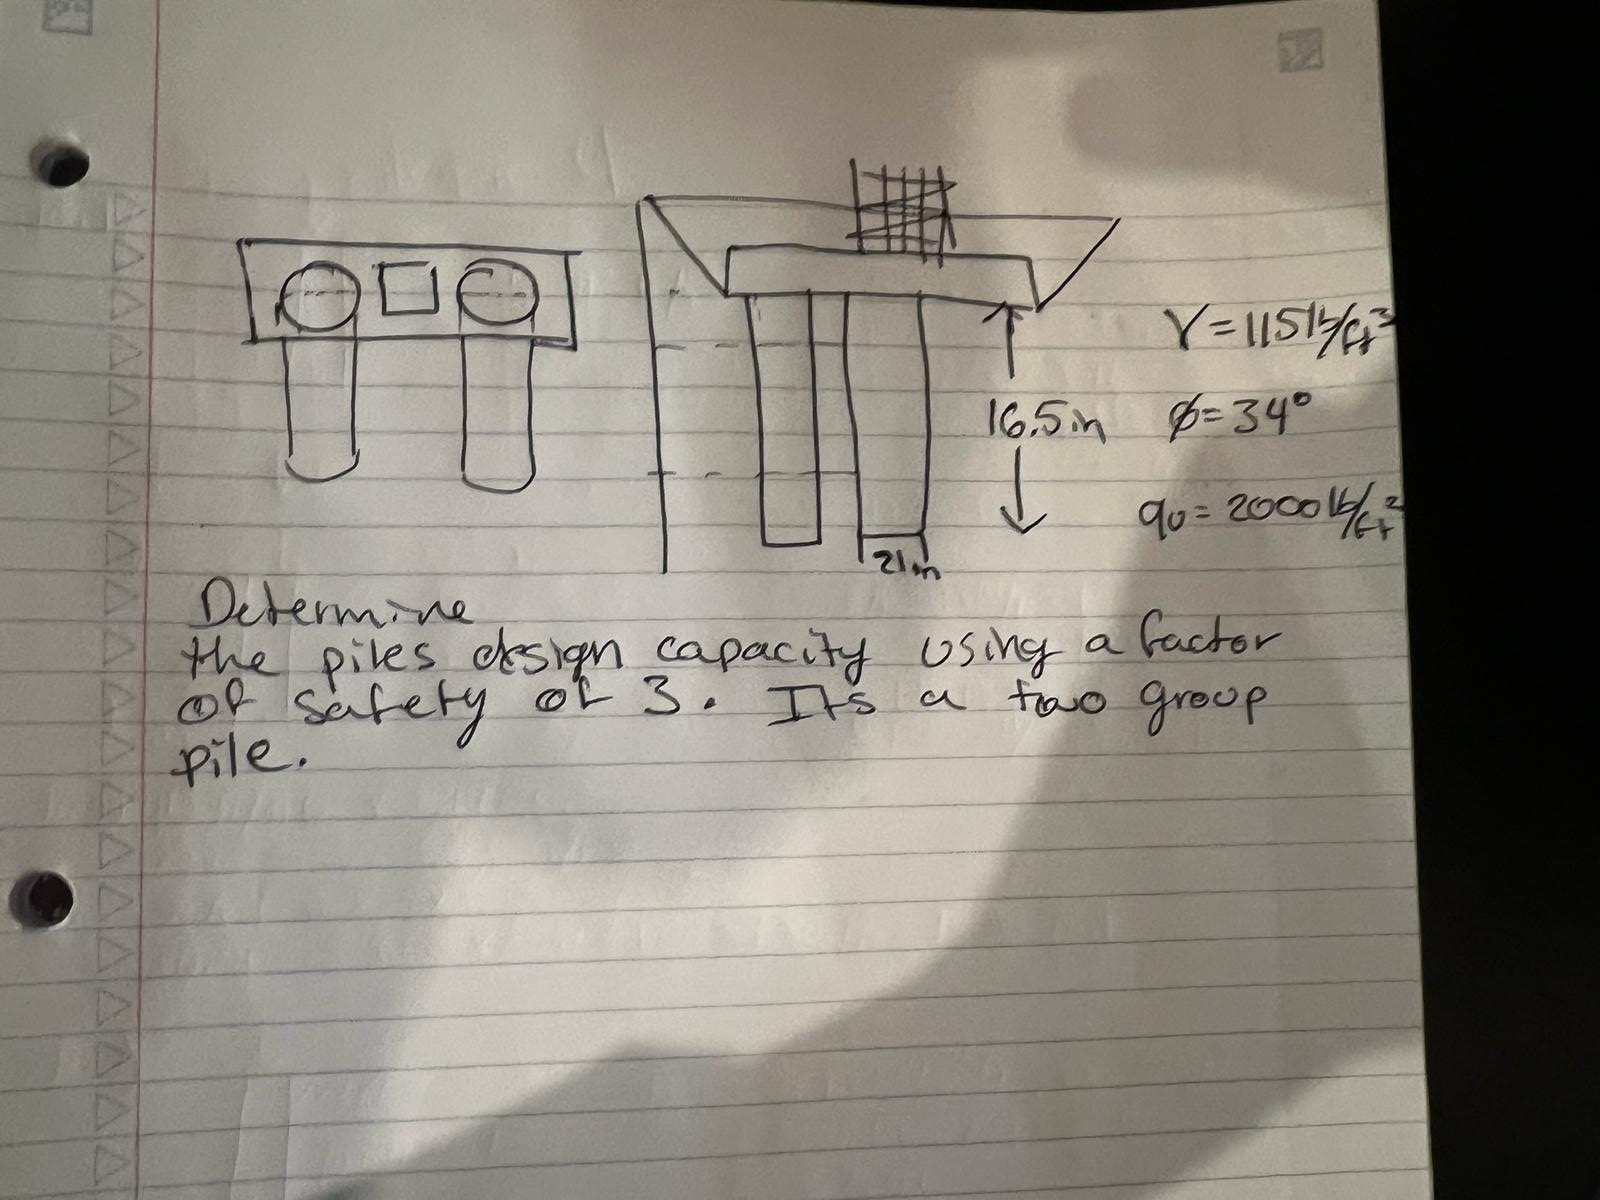 γ=115lb/ft³
16.5in ø=34°
qu=2000lb/ft²
21in
Determine
the piles design capacity using a factor
of safety of 3. Its a two group
pile.